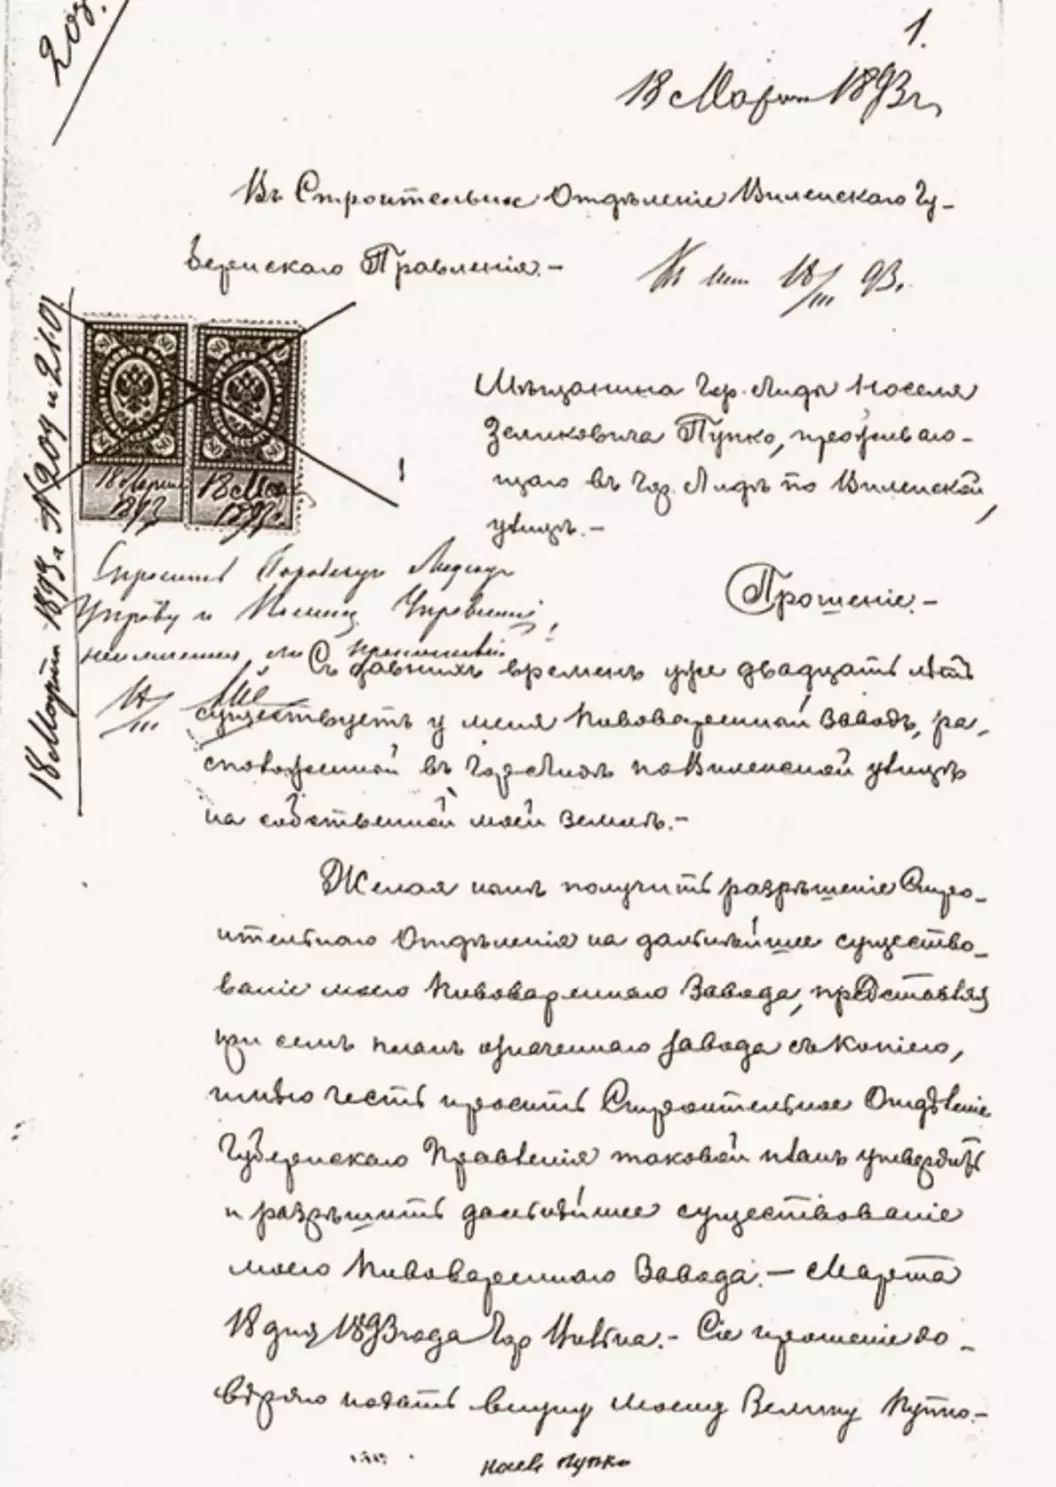 209.
1.
18 Марта 1893 г.
Въ Строительное Отдѣленіе Виленскаго Гу-
бернскаго Правленія.-
18/III 93.
Мѣщанина гор. Лиды Носеля
Зеликовича Пупко, прожываю-
щаго въ гор. Лидѣ по Виленской
улицѣ.-
80 80
18 Марта 1893
18 Мар 1893 г.
18 Марта 1893 г. № 209 и 21.0
Спросить Городскую Лидскую
Управу и Полиц Управленіе,
препятствій
18/III
Прошеніе.-
Съ давнихъ временъ уже двадцать лѣтъ
существуетъ у меня пивоваренной заводъ, ра-
сположенной въ гор. Лидѣ по Виленской улицѣ
на собственной моей землѣ.-
Желая нынѣ получить разрѣшеніе Строи-
ительнаго Отдѣленія на дальнѣйшее существо-
ваніе моего пивовареннаго завода, представляя
при семъ планъ означеннаго завода съ копіею,
имѣю честь просить Строительное Отдѣленіе
Губернскаго Правленія таковой планъ утвердить
и разрѣшить дальнѣйшее существованіе
моего пивовареннаго завода.- Марта
18 дня 1893 года гор Вильна.- Сіе прошеніе до-
вѣряю подать внуку моему Пупко.-
Носель Пупко